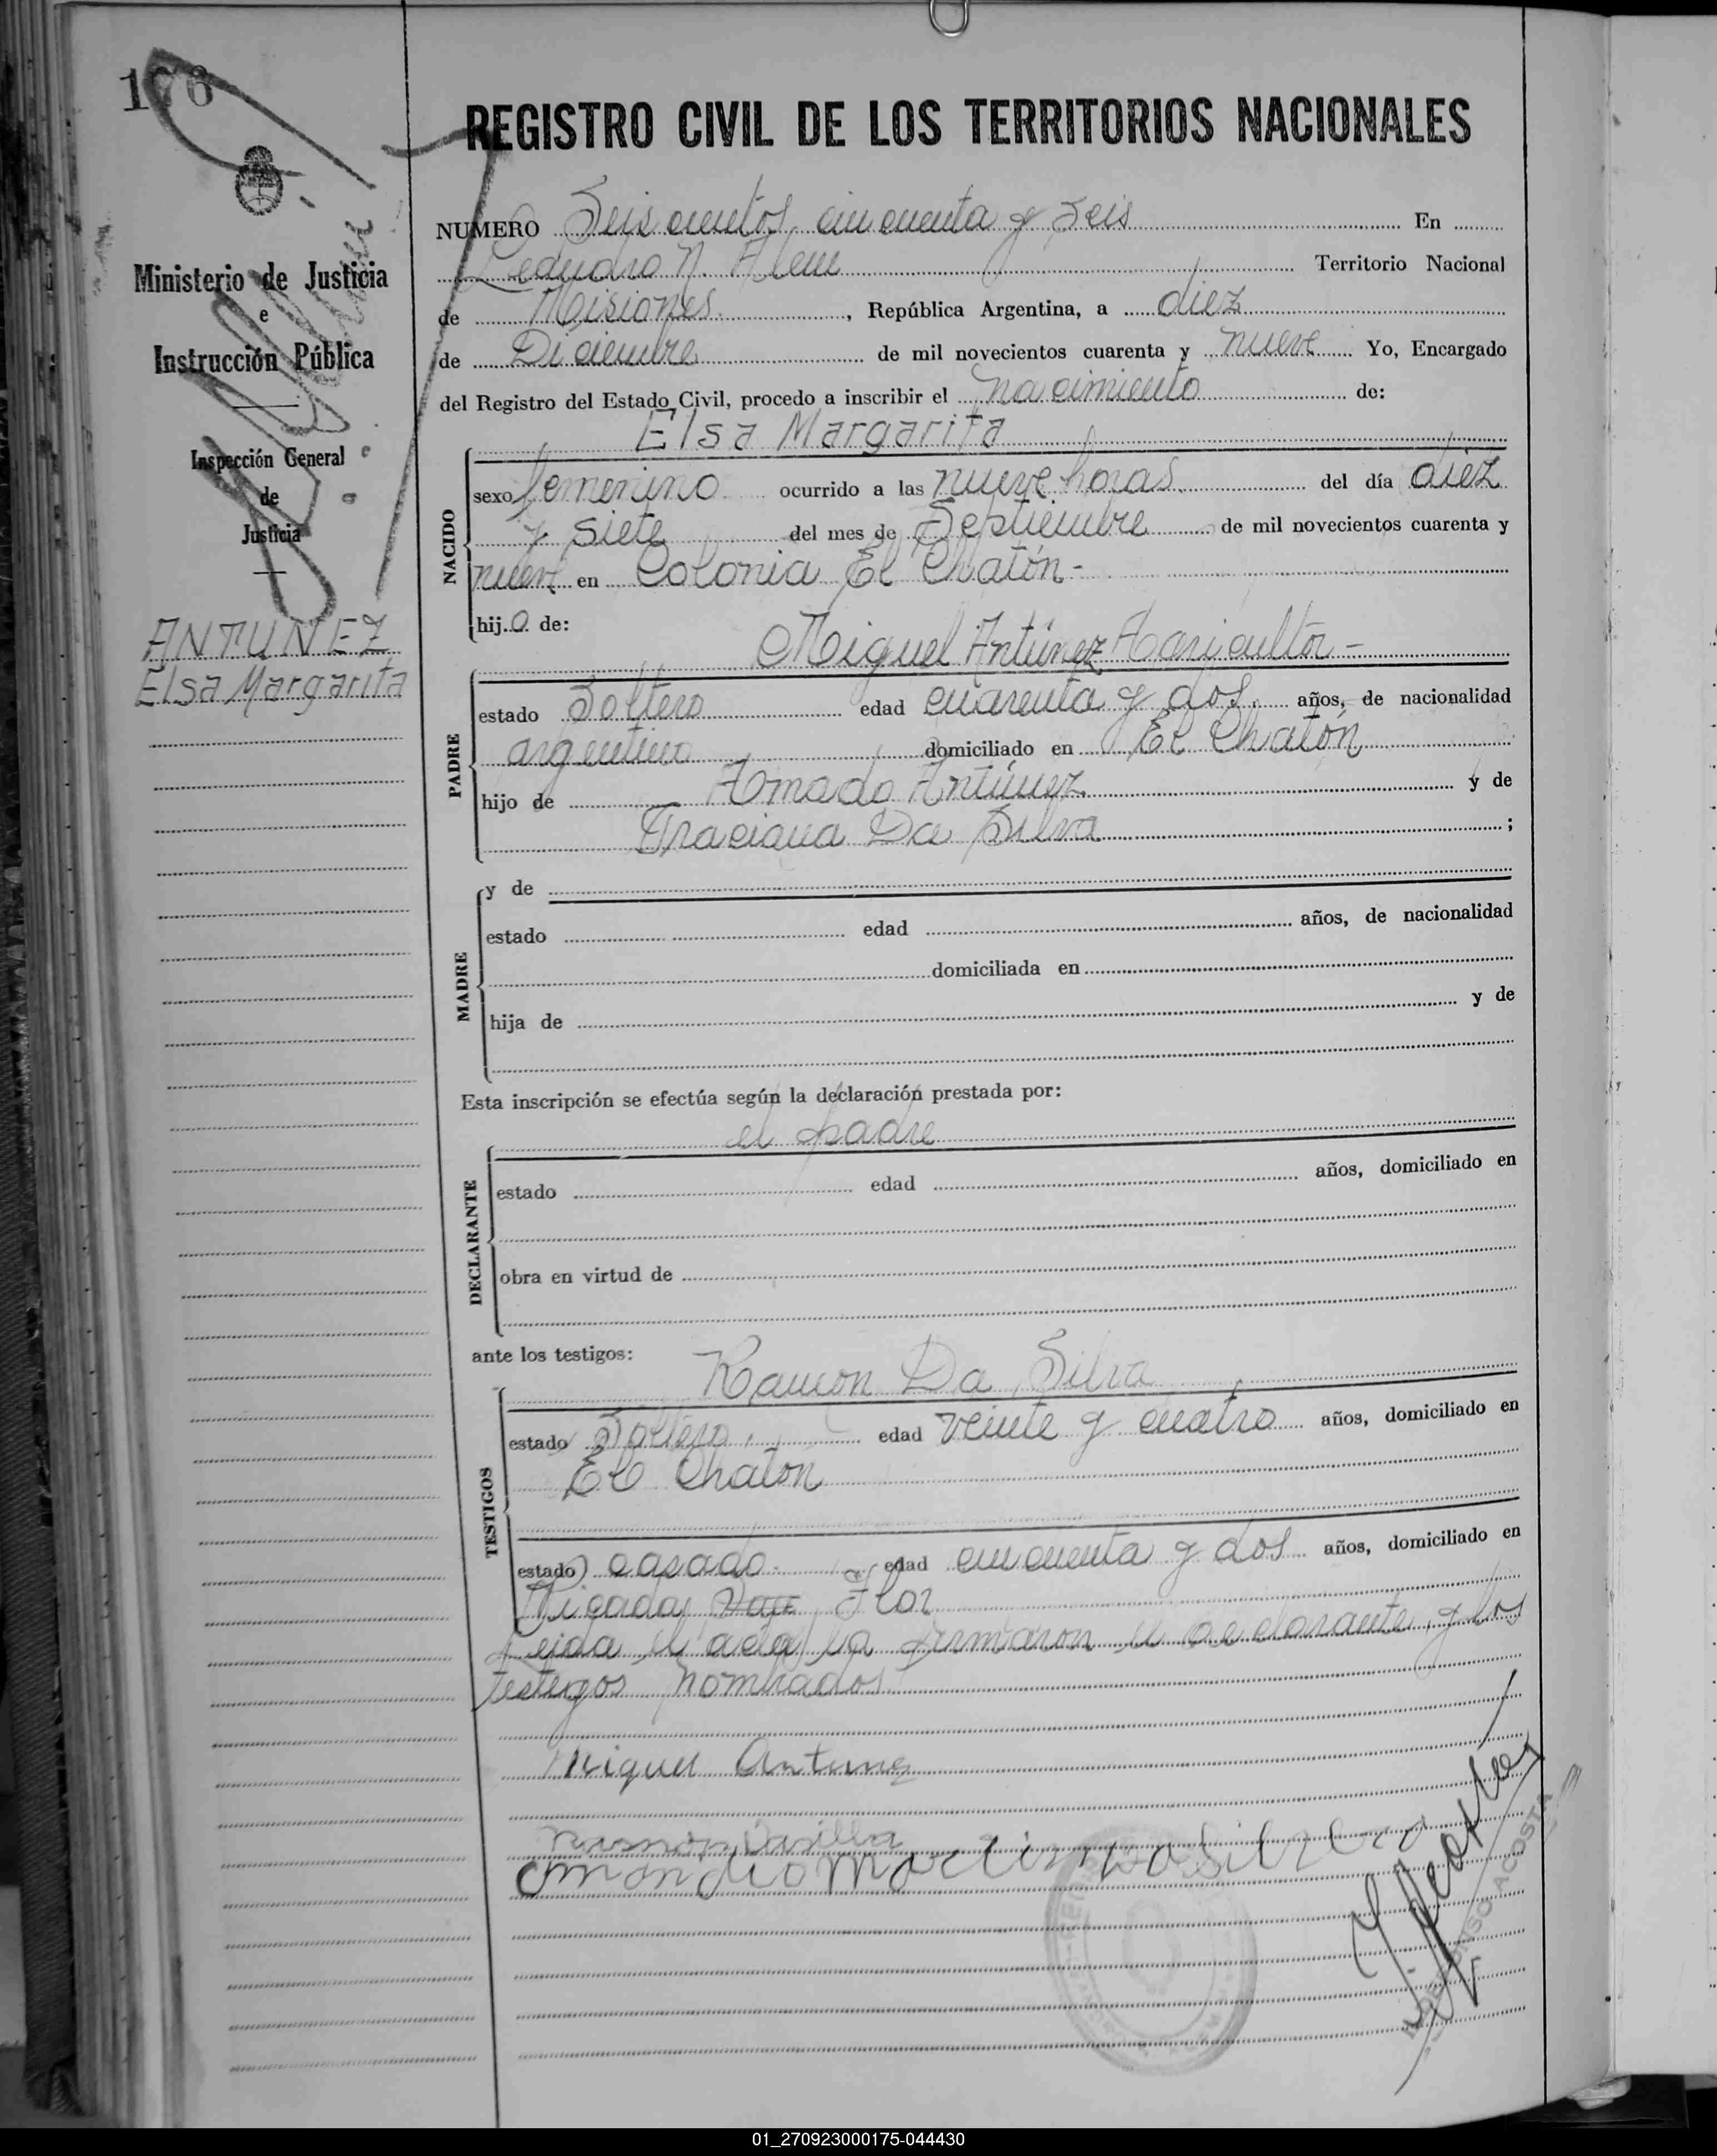 176
REGISTRO CIVIL DE LOS TERRITORIOS NACIONALES
Ministerio de Justicia
e
Instrucción Pública
Inspección General
de
Justicia
ANTUNEZ
Elsa Margarita
NUMERO Seis cientos cincuenta y Seis En
Leandro N. Alem Territorio Nacional
de Misiones, República Argentina, a diez
de Diciembre de mil novecientos cuarenta y nueve Yo, Encargado
del Registro del Estado Civil, procedo a inscribir el nacimiento de:
Elsa Margarita
NACIDO
sexo femenino ocurrido a las nueve horas del día diez
y siete del mes de Septiembre de mil novecientos cuarenta y
nueve en Colonia El Chatón-
hija de:
Miguel Antúnez Agricultor-
PADRE
estado Soltero edad cuarenta y dos años, de nacionalidad
argentino domiciliado en El Chatón
hijo de Amado Antúnez y de
Graciana Da Silva;
MADRE
y de
estado edad años, de nacionalidad
domiciliada en
hija de y de
Esta inscripción se efectúa según la declaración prestada por:
el padre
DECLARANTE
estado edad años, domiciliado en
obra en virtud de
ante los testigos:
Ramon Da Silva
TESTIGOS
estado Soltero edad veinte y cuatro años, domiciliado en
El Chaton
estado casado edad cincuenta y dos años, domiciliado en
Picada Flor
Leida el acta la firmaron el declarante y los
testigos nombrados
Miguel Antunez
ILDEFONSO ACOSTA
01_270923000175-044430